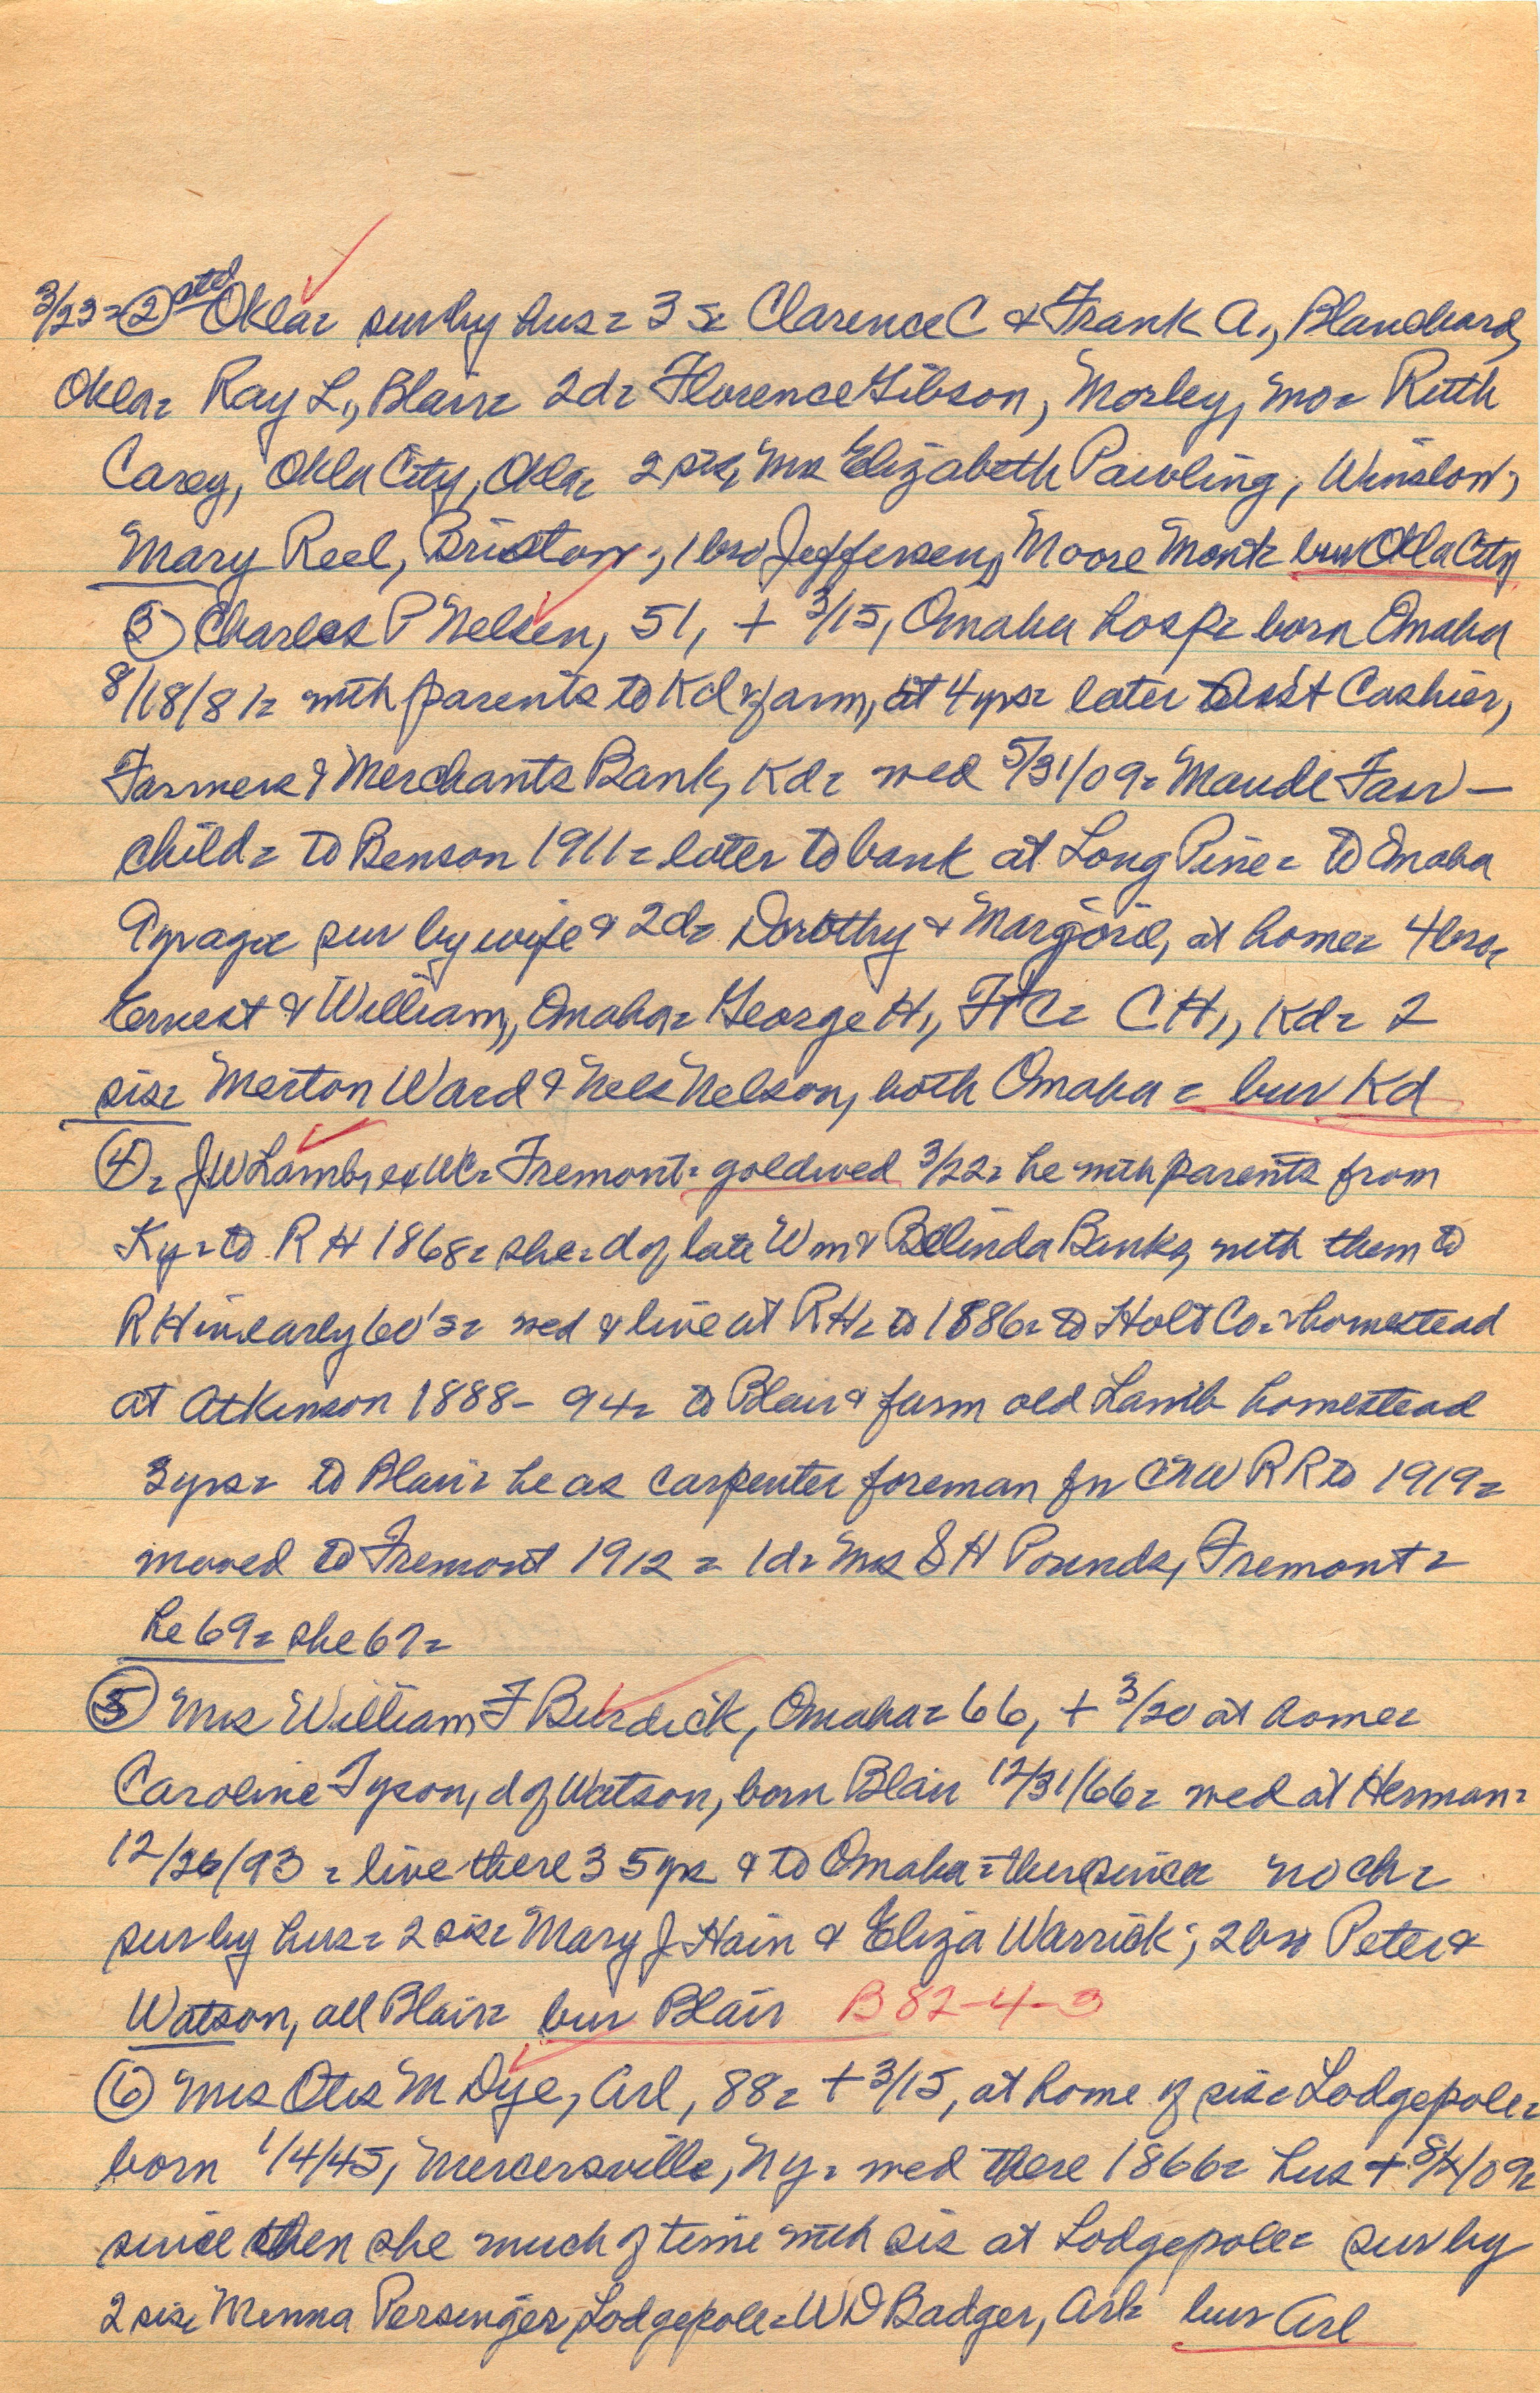 3/23 = ② ctd Okla = surv by hus = 3 s = Clarence C & Frank A., Blanchard,
Okla = Ray L., Blair = 2d = Florence Gibson, Morley, Mo = Ruth
Casey, Okla City, Okla = 2 sis, Mrs Elizabeth Pawling, Winslow;
Mary Reel, Bristow; 1 bro Jefferson, Moore Mont = bur Okla City
③ Charles P Nelsen, 51, + 3/15, Omaha hosp = born Omaha
8/18/81 = with parents to Kd & farm, at 4 yrs = later Asst Cashier,
Farmers & Merchants Bank, Kd = wed 5/31/09 = Maude Fair-
child = to Benson 1911 = later to bank at Long Pine = to Omaha
yr ago = surv by wife & 2d = Dorothy & Marjorie, at home = 4 bro =
Ernest & William, Omaha = George H., Ft C = C H., Kd = 2
sis = Merton Ward & Nels Nelson, both Omaha = bur Kd
④ = J W Lamb, ex WC = Fremont = gold wed 3/22 = he with parents from
Ky = to R H 1868 = she = d of late Wm & Belinda Banks, with them to
R H in early 60's = wed & live at RH = to 1886 = to Holt Co = & homestead
at Atkinson 1888 - 94 = to Blair & farm old Lamb homestead
3 yrs = to Blair = he as carpenter foreman for CNW RR to 1919 =
moved to Fremont 1912 = 1d = Mrs S H Pounds, Fremont =
he 69 = she 67 =
⑤ Mrs William F Burdick, Omaha = 66, + 3/20 at home =
Caroline Tyson, d of Watson, born Blair 12/31/66 = wed at Herman =
12/26/93 = live there 35 yrs & to Omaha = there since = no ch =
surv by hus = 2 sis = Mary J Hain & Eliza Warrick; 2 bro Peter &
Watson, all Blair = bur Blair B 82-4-3
⑥ Mrs Otis M Dye, Arl, 88 = + 3/15, at home of sis = Lodgepole =
born 1/4/45, Mercersville, NY = wed there 1866 = hus + 8/4/09 =
since then she much of time with sis at Lodgepole = surv by
2 sis = Minna Persinger, Lodgepole = W D Badger, Arl = bur Arl